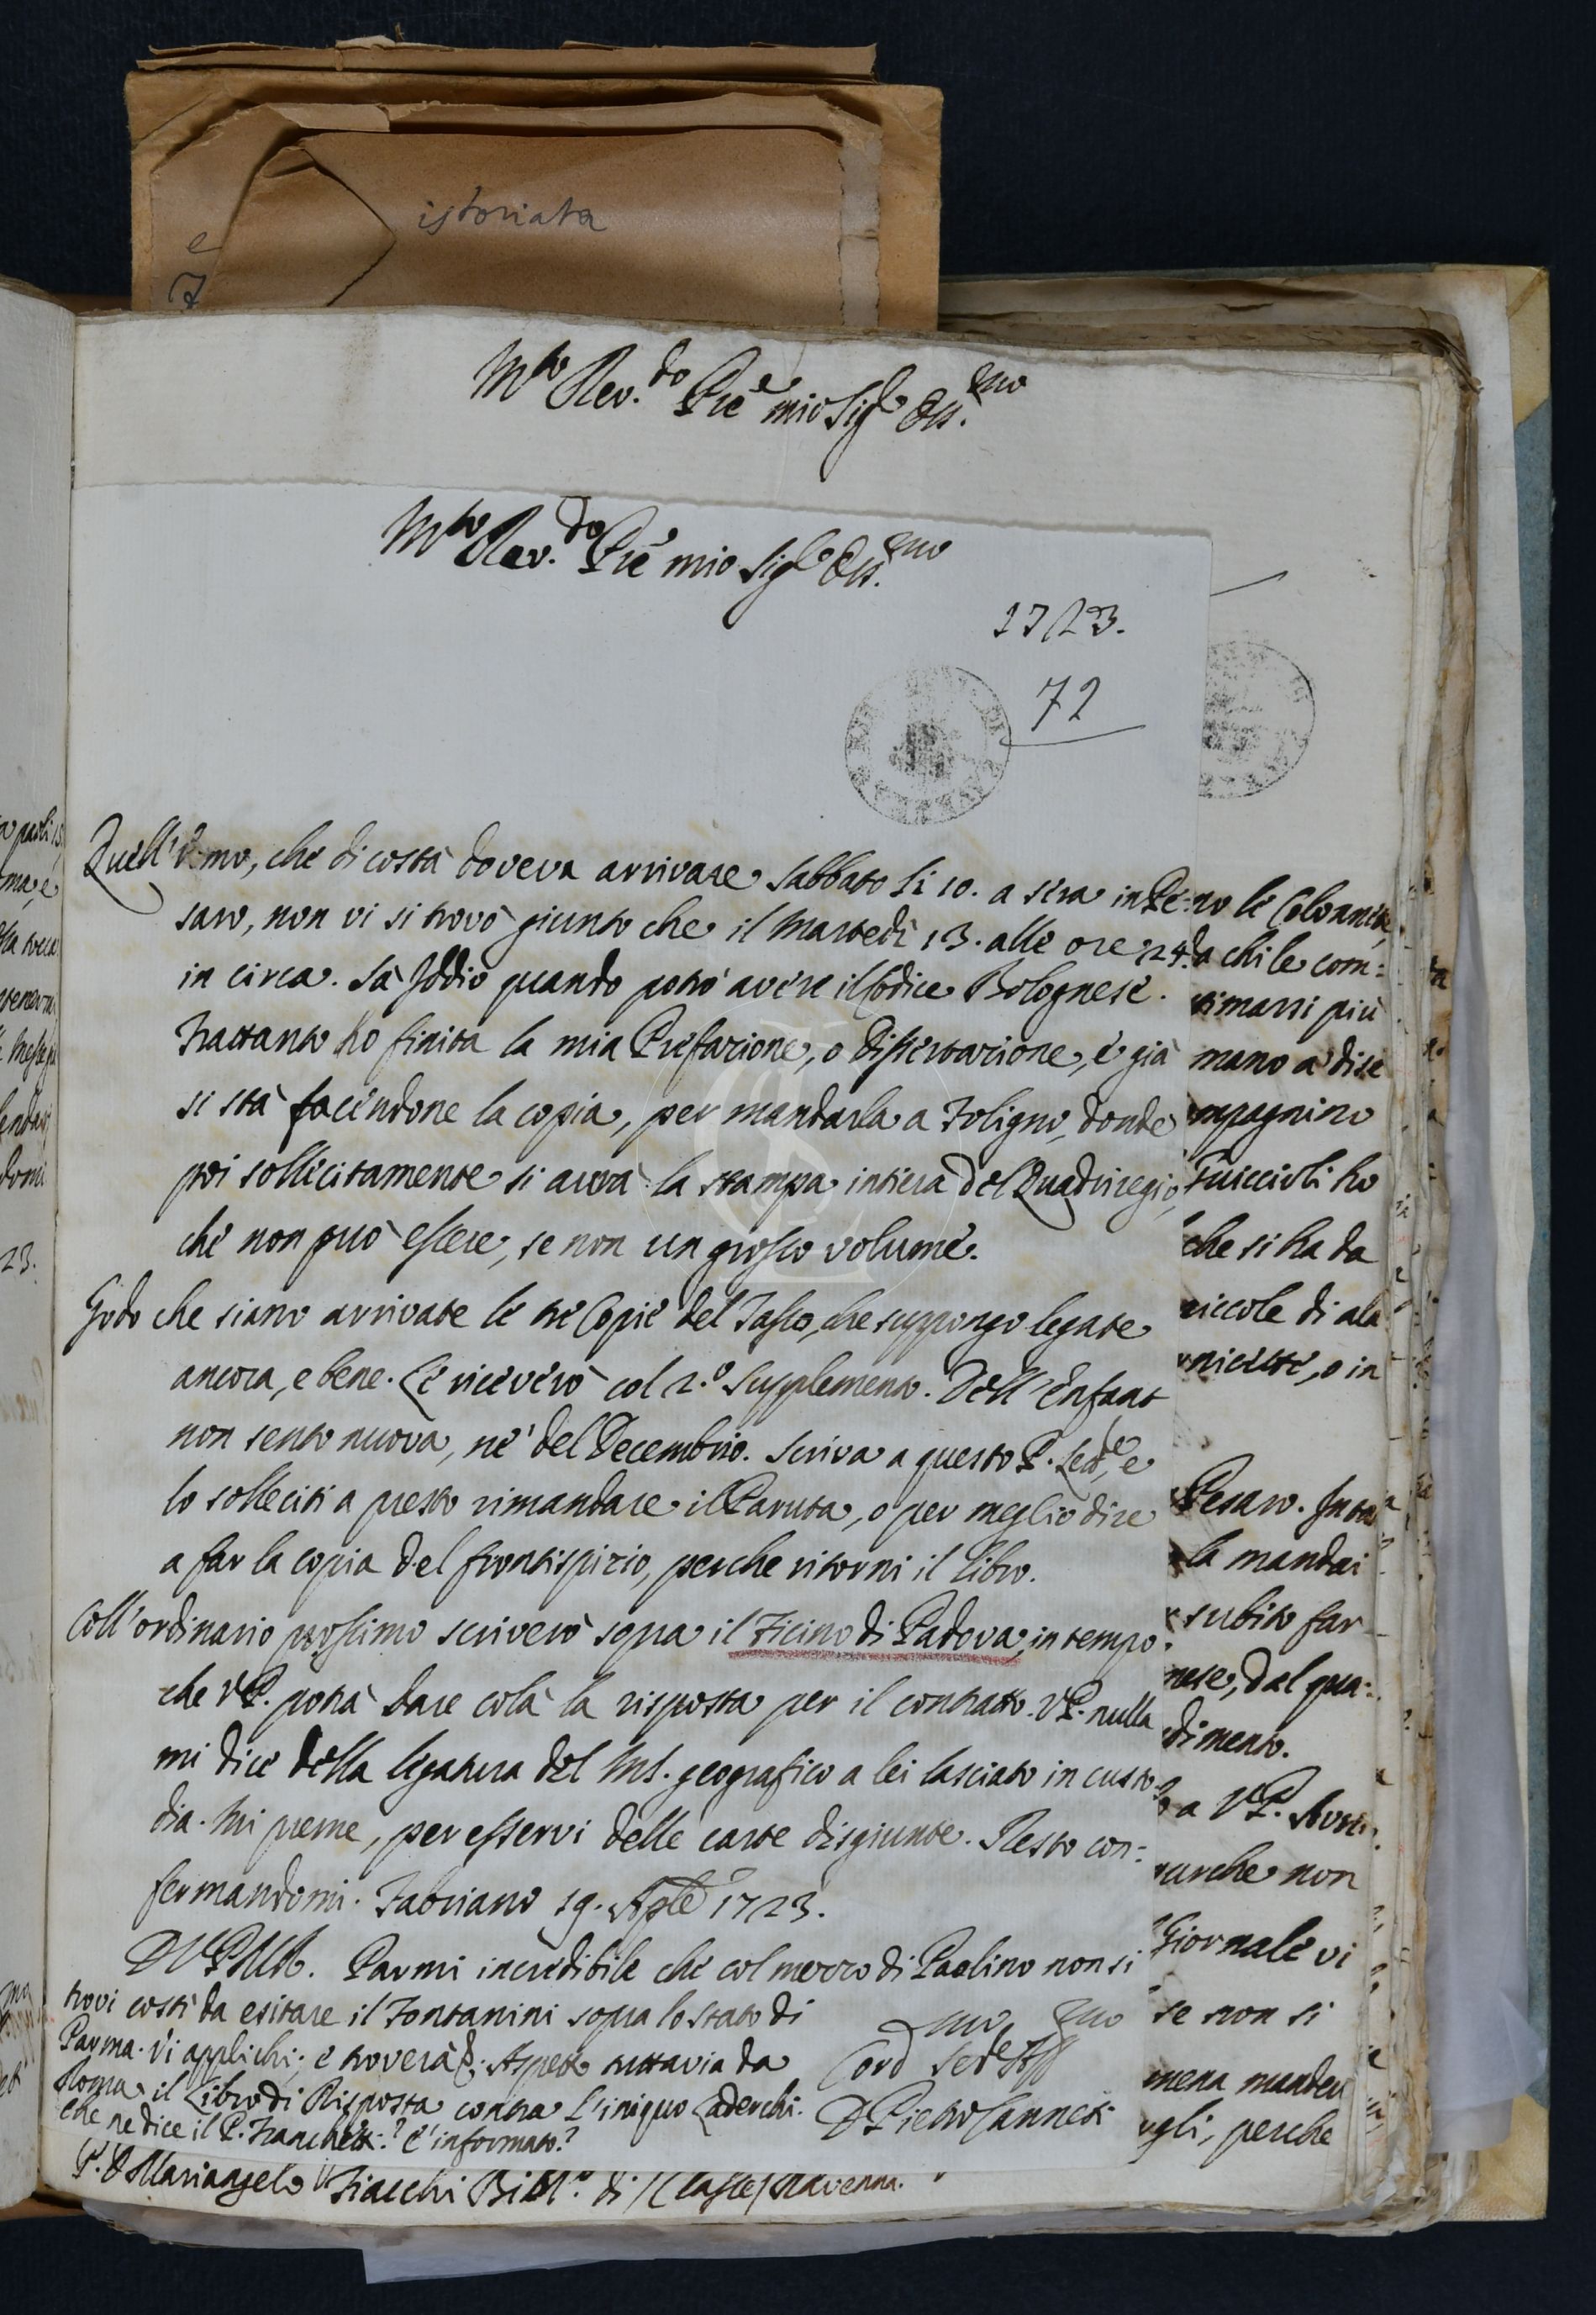 istoriata
e
Mto Rev.do Pre mio Sige Oss.mo
Mto Rev.do Pre mio Sige Oss.mo
1723.
72
Quell'Uomo, che di costà doveva arrivare Sabbato li 10. a sera in Pe:
saro, non vi si trovò giunto che il Martedì 13. alle ore 24.
in circa. Sà Iddio quando potrò avere il Codice Bolognese.
Frattanto ho finita la mia Prefazione, o Dissertazione, e già
si stà facendone la copia, per mandarla a Foligno, donde
poi sollecitamente si avrà la stampa intiera del Quadriregio,
che non può essere, se non un grosso volume.
Godo che siano arrivate le tre Copie del Tasso, che suppongo legate
ancora, e bene. Le riceverò col 2.º Supplemento. Dell'Enfant
non sento nuova, ne' del Decembrio. Scriva a questo P. Lede, e
lo solleciti a presto rimandare il Paruta, o per meglio dire
a far la copia del frontispizio, perche ritorni il libro.
Coll'ordinario prossimo scriverò sopra il Ficino di Padova, in tempo
che V.P. potrà dare colà la risposta per il contratto. V.P. nulla
mi dice della legatura del Ms. geografico a lei lasciato in custo:
dia. Mi preme, per esservi delle carte disgiunte. Resto con:
fermandomi. Fabriano 19. Aple 1723.
D V.P.M.R. Parmi incredibile che col mezzo di Paolino non si
trovi costì da esitare il Fontanini sopra lo stato di
Parma. Vi applichi; e troverà &. Aspetto tuttavia da
Roma il Libro di Risposta contra l'iniquo Laderchi.
Che ne dice il P. Franchetti? è informato?
D Pietro Canneti
P. D Mariangelo Fiacchi Bibl.º di Classe Ravenna.
no le Colonnette,
da chi le com:
timarsi più
mano a dise
mpagnino
Fuiccioli ho
che si ha da
piccole di ala
nicette, o in
Pesaro. Inta
la mandai
subito far
nese, dal qua:
dimento.
a V.P.
urche non
Giornale vi
se non si
mena mandeu
egli, perche
23.